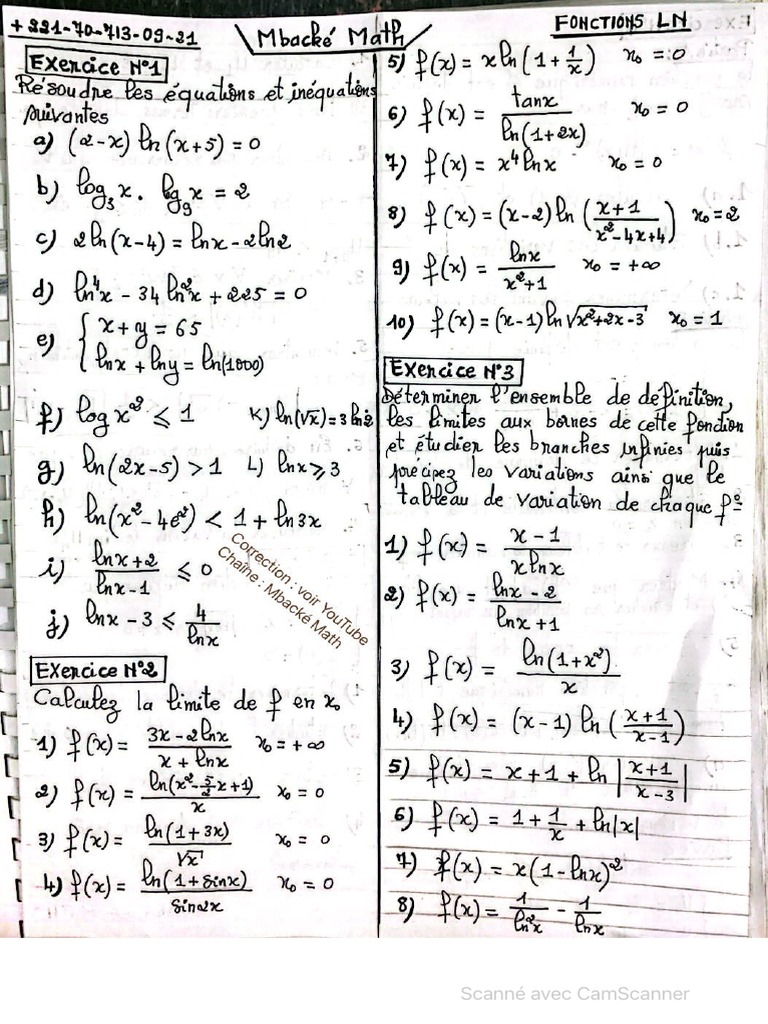 +221-70-713-09-21
Mbacké Math
FONCTIONS LN
Exercice N°1
Résoudre les équations et inéquations
suivantes
a) (2-x) ln(x+5) = 0
b) log₃x . log₉x = 2
c) 2ln(x-4) = lnx - 2ln2
d) ln⁴x - 34 ln²x + 225 = 0
e) { x + y = 65
lnx + lny = ln(1000)
f) log x² ≤ 1 K) ln(√x) = 3 ln2
g) ln(2x-5) > 1 L) lnx ≥ 3
h) ln(x² - 4e²) < 1 + ln3x
i) (lnx+2)/(lnx-1) ≤ 0
j) lnx - 3 ≤ 4/lnx
Correction : voir YouTube
Chaîne : Mbacké Math
Exercice N°2
Calculez la limite de f en x₀
1) f(x) = (3x-2lnx)/(x+lnx) x₀ = +∞
2) f(x) = ln(x²-5/2x+1)/x x₀ = 0
3) f(x) = ln(1+3x)/√x x₀ = 0
4) f(x) = ln(1+sinx)/sin2x x₀ = 0
5) f(x) = x ln(1+1/x) x₀ = 0
6) f(x) = tanx/ln(1+2x) x₀ = 0
7) f(x) = x⁴lnx x₀ = 0
8) f(x) = (x-2) ln((x+1)/(x²-4x+4)) x₀ = 2
9) f(x) = lnx/(x²+1) x₀ = +∞
10) f(x) = (x-1) ln√(x²+2x-3) x₀ = 1
Exercice N°3
Déterminer l'ensemble de definition,
les limites aux bornes de cette fonction
et étudier les branches infinies puis
précipez les variations ainsi que le
tableau de variation de chaque f°
1) f(x) = (x-1)/(xlnx)
2) f(x) = (lnx-2)/(lnx+1)
3) f(x) = ln(1+x²)/x
4) f(x) = (x-1) ln((x+1)/(x-1))
5) f(x) = x+1+ ln|(x+1)/(x-3)|
6) f(x) = 1+1/x + ln|x|
7) f(x) = x(1-lnx)²
8) f(x) = 1/ln²x - 1/lnx
Scanné avec CamScanner